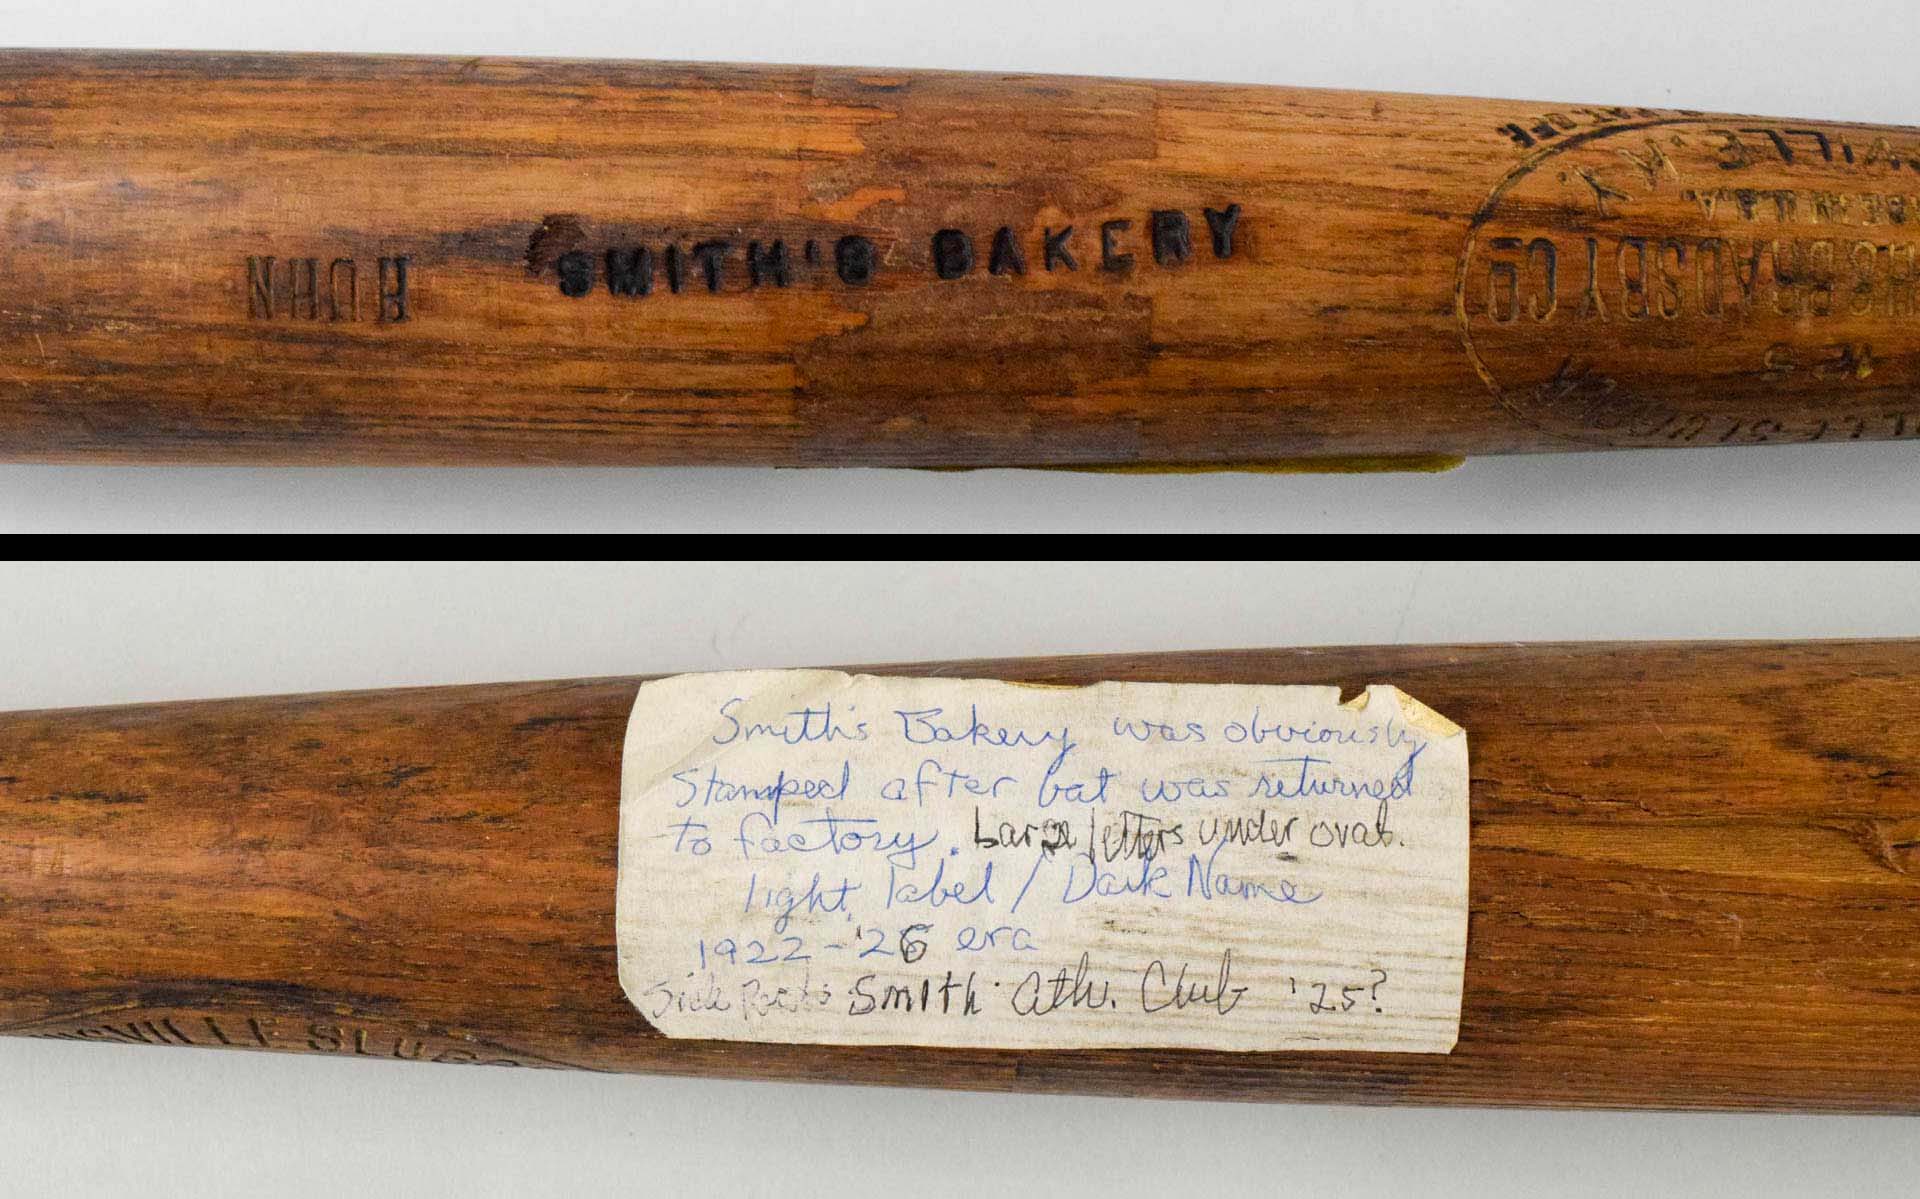 HUHN
SMITH'S BAKERY
125
H & BRADSBY CO
DE IN U.S.A.
VILLE. KY.
PAT.OFF.
Smith's Bakery was obviously
stamped after bat was returned
to factory. Large letters under oval.
light label / Dark Name
1922-'26 era
Side Smith Ath. Club '25?
VILLE SLUGG